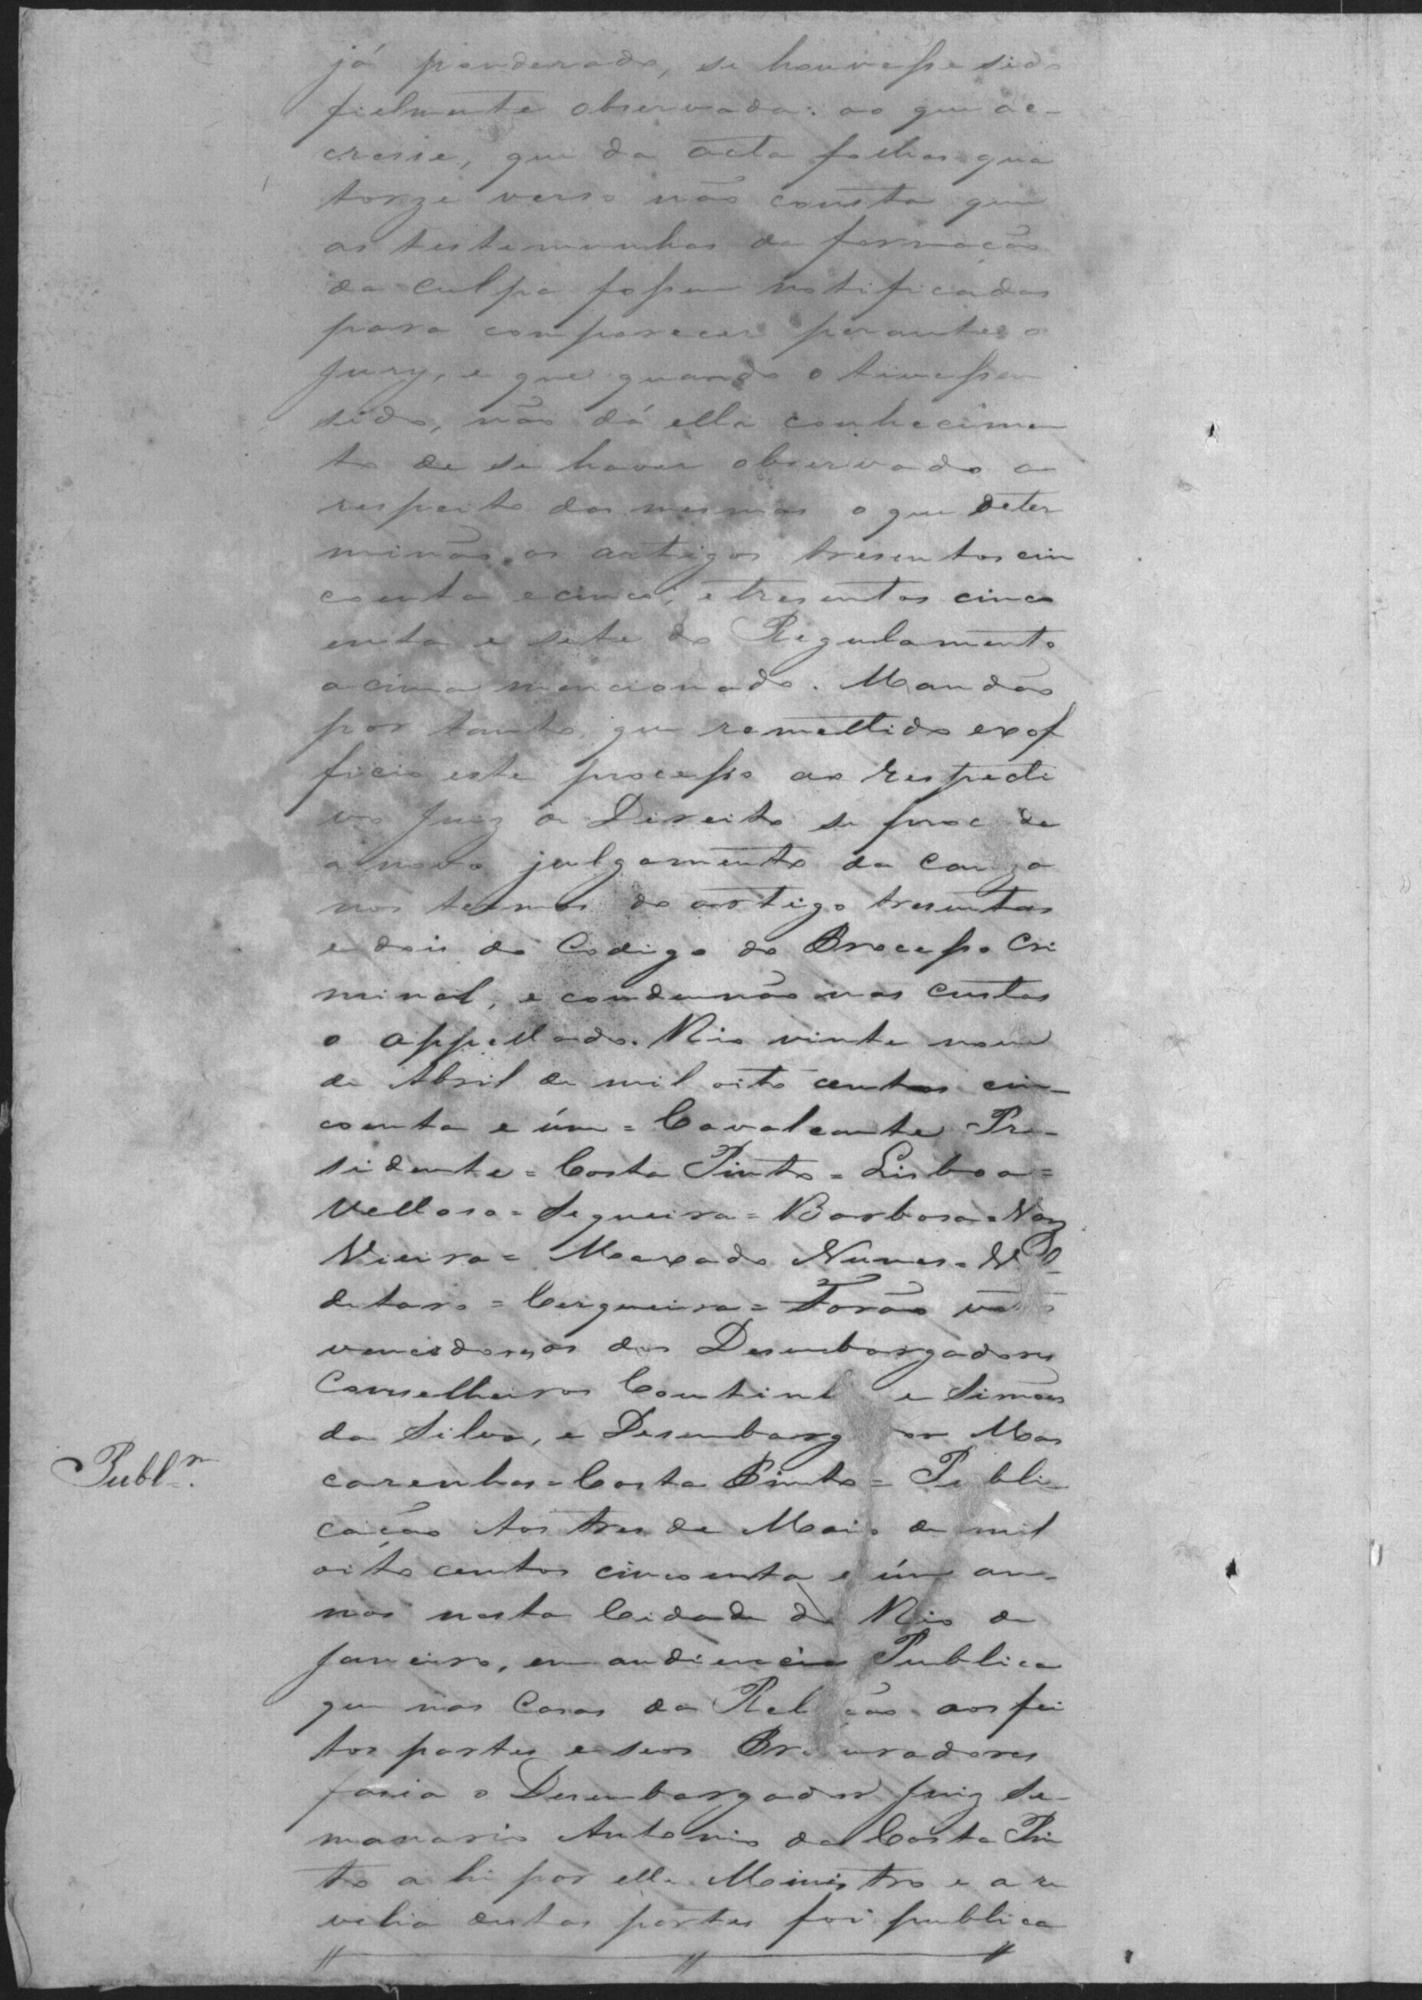 já ponderado, se houvesse sido
fielmente observada: ao que ac-
cresce, que da acta folhas qua
torze verso não consta que
as testemunhas da formação
da culpa fossem notificadas
para comparecer perante o
Jury, e que quando o tivessem
sido, não dá ella conhecimen
to de se haver observado a
respeito das mesmas o que deter
minão os artigos tresentos cin
coenta e cinco, e tresentos cinco
enta e sete do Regulamento
acima mencionado. Mandão
por tanto, que remettido exof
ficio este processo ao respecti
vo Juiz de Direito se proc da
a novo julgamento da causa
nos termos do artigo tresentos
e dois do Codigo do Processo Cri
minal, e condemnão nas custas
o appellado. Rio vinte nove
de Abril de mil oito centos cin-
coenta e úm = Cavalcante Pre-
sidente = Costa Pinto = Lisboa =
Velloso = Siqueira = Barbosa = Vaz
Vieira = Maxado Nunes =
= Cerqueira = Forão
vencedores os dos Desembargadores
Conselheiros Coutinh e Simões
da Silva, e Desembarg or Mas
carenhas = Costa Pinto = Publi
Publ.m
cação Aos tres de Maio de mil
oito centos cincoenta e úm an-
nos nesta Cidade do Rio de
Janeiro, em audiencia Publica
que nas Casas da Rel ção aos fei
tos partes e seos Pro uradores
fazia o Desembargador Juiz Se-
manario Antonio da Costa Pin
to ahi por elle Ministro e a re
velia destas partes foi publica